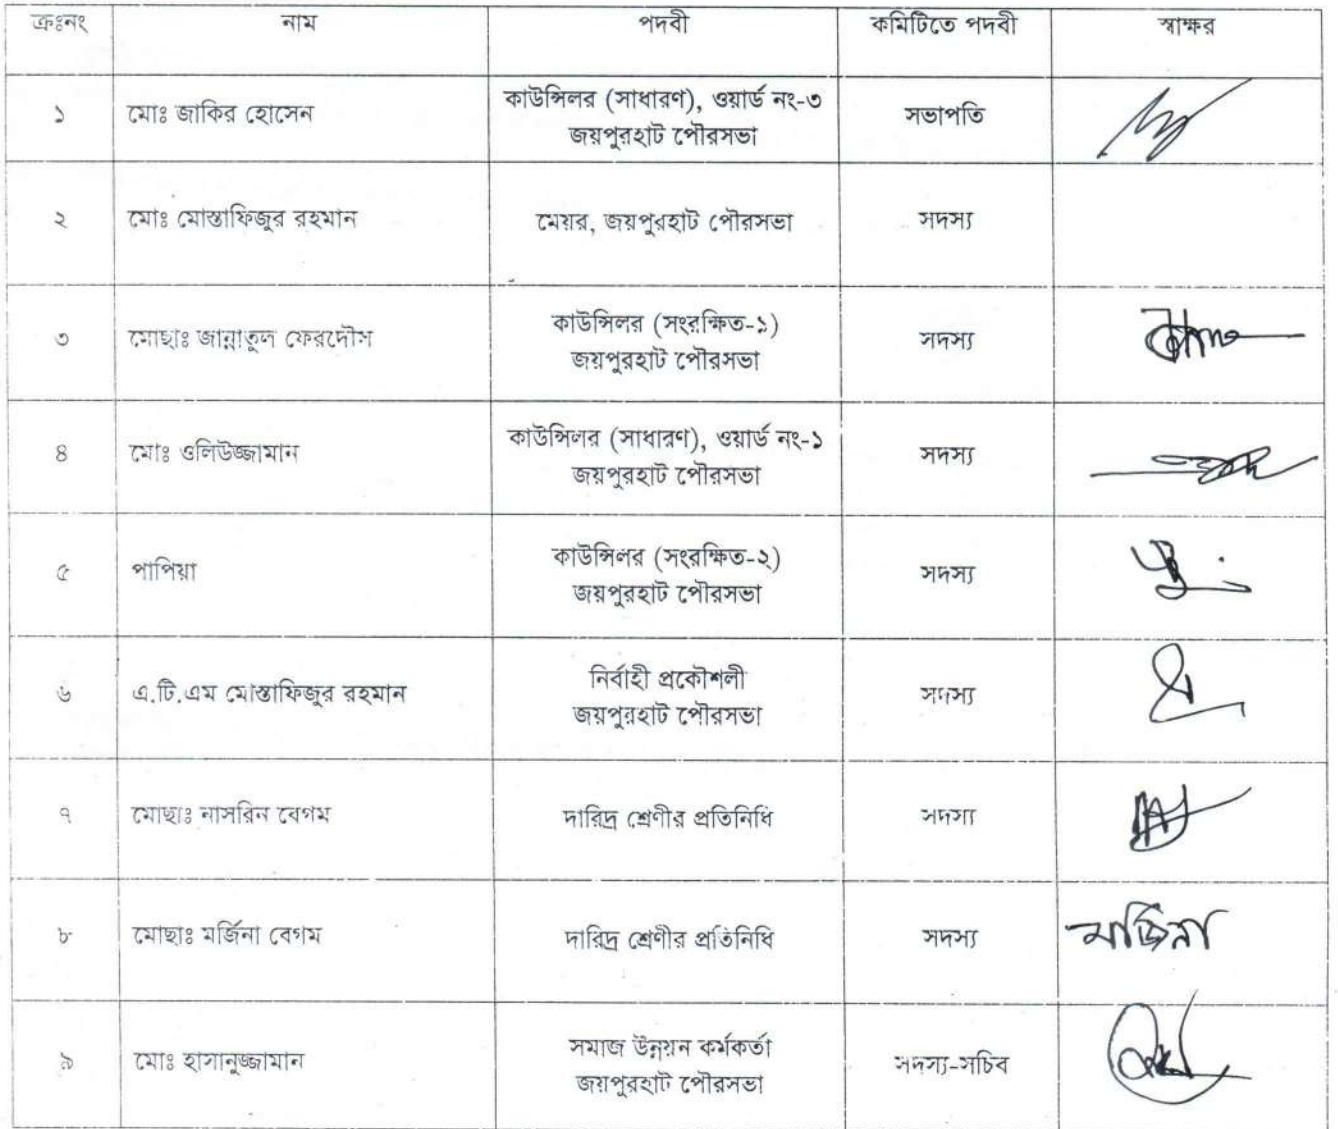 ক্রঃনং নাম পদবী কমিটিতে পদবী স্বাক্ষর
১ মোঃ জাকির হোসেন কাউন্সিলর (সাধারণ), ওয়ার্ড নং-৩ সভাপতি
জয়পুরহাট পৌরসভা
২ মোঃ মোস্তাফিজুর রহমান মেয়র, জয়পুরহাট পৌরসভা সদস্য
৩ মোছাঃ জান্নাতুল ফেরদৌস কাউন্সিলর (সংরক্ষিত-১) সদস্য
জয়পুরহাট পৌরসভা
৪ মোঃ ওলিউজ্জামান কাউন্সিলর (সাধারণ), ওয়ার্ড নং-১ সদস্য
জয়পুরহাট পৌরসভা
৫ পাপিয়া কাউন্সিলর (সংরক্ষিত-২) সদস্য
জয়পুরহাট পৌরসভা
৬ এ.টি.এম মোস্তাফিজুর রহমান নির্বাহী প্রকৌশলী সদস্য
জয়পুরহাট পৌরসভা
৭ মোছাঃ নাসরিন বেগম দারিদ্র শ্রেণীর প্রতিনিধি সদস্য
৮ মোছাঃ মর্জিনা বেগম দারিদ্র শ্রেণীর প্রতিনিধি সদস্য মর্জিনা
৯ মোঃ হাসানুজ্জামান সমাজ উন্নয়ন কর্মকর্তা সদস্য-সচিব
জয়পুরহাট পৌরসভা